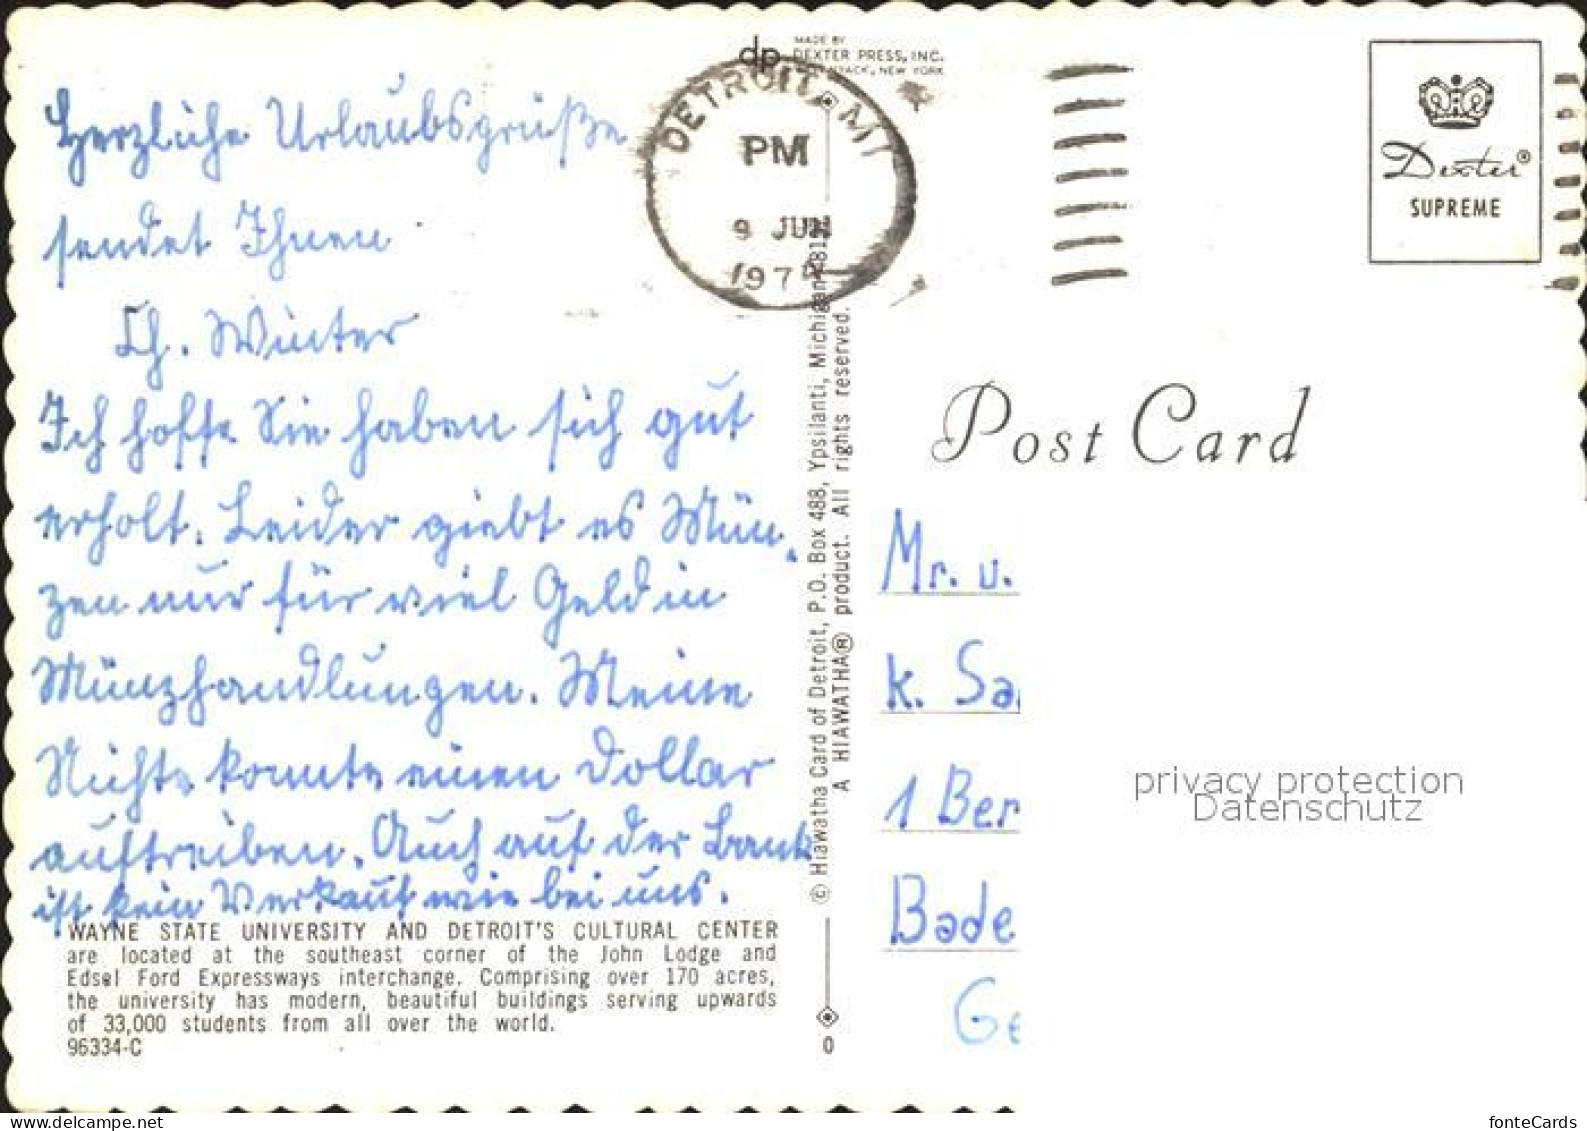 dp MADE BY
DEXTER PRESS, INC.
NYACK, NEW YORK
Herzliche Urlaubsgrüße
sendet Ihnen
Ch. Winter
Ich hoffe Sie haben sich gut
erholt. Leider giebt es Mün-
zen nur für viel Geld in
Münzhandlungen. Meine
Nichte konnte einen Dollar
auftreiben. Auch auf der Bank
ist kein Verkauf wie bei uns.
WAYNE STATE UNIVERSITY AND DETROIT'S CULTURAL CENTER
are located at the southeast corner of the John Lodge and
Edsel Ford Expressways interchange. Comprising over 170 acres,
the university has modern, beautiful buildings serving upwards
of 33,000 students from all over the world.
96334-C
DETROIT, MI
PM
9 JUN
197
© Hiawatha Card of Detroit, P.O. Box 488, Ypsilanti, Michigan 481
A HIAWATHA® product. All rights reserved.
0
Dexter®
SUPREME
Post Card
Mr. u.
k. Sa
1 Ber
Bade
Ge
privacy protection
Datenschutz
www.ansichtskartenversand.com
fonteCards